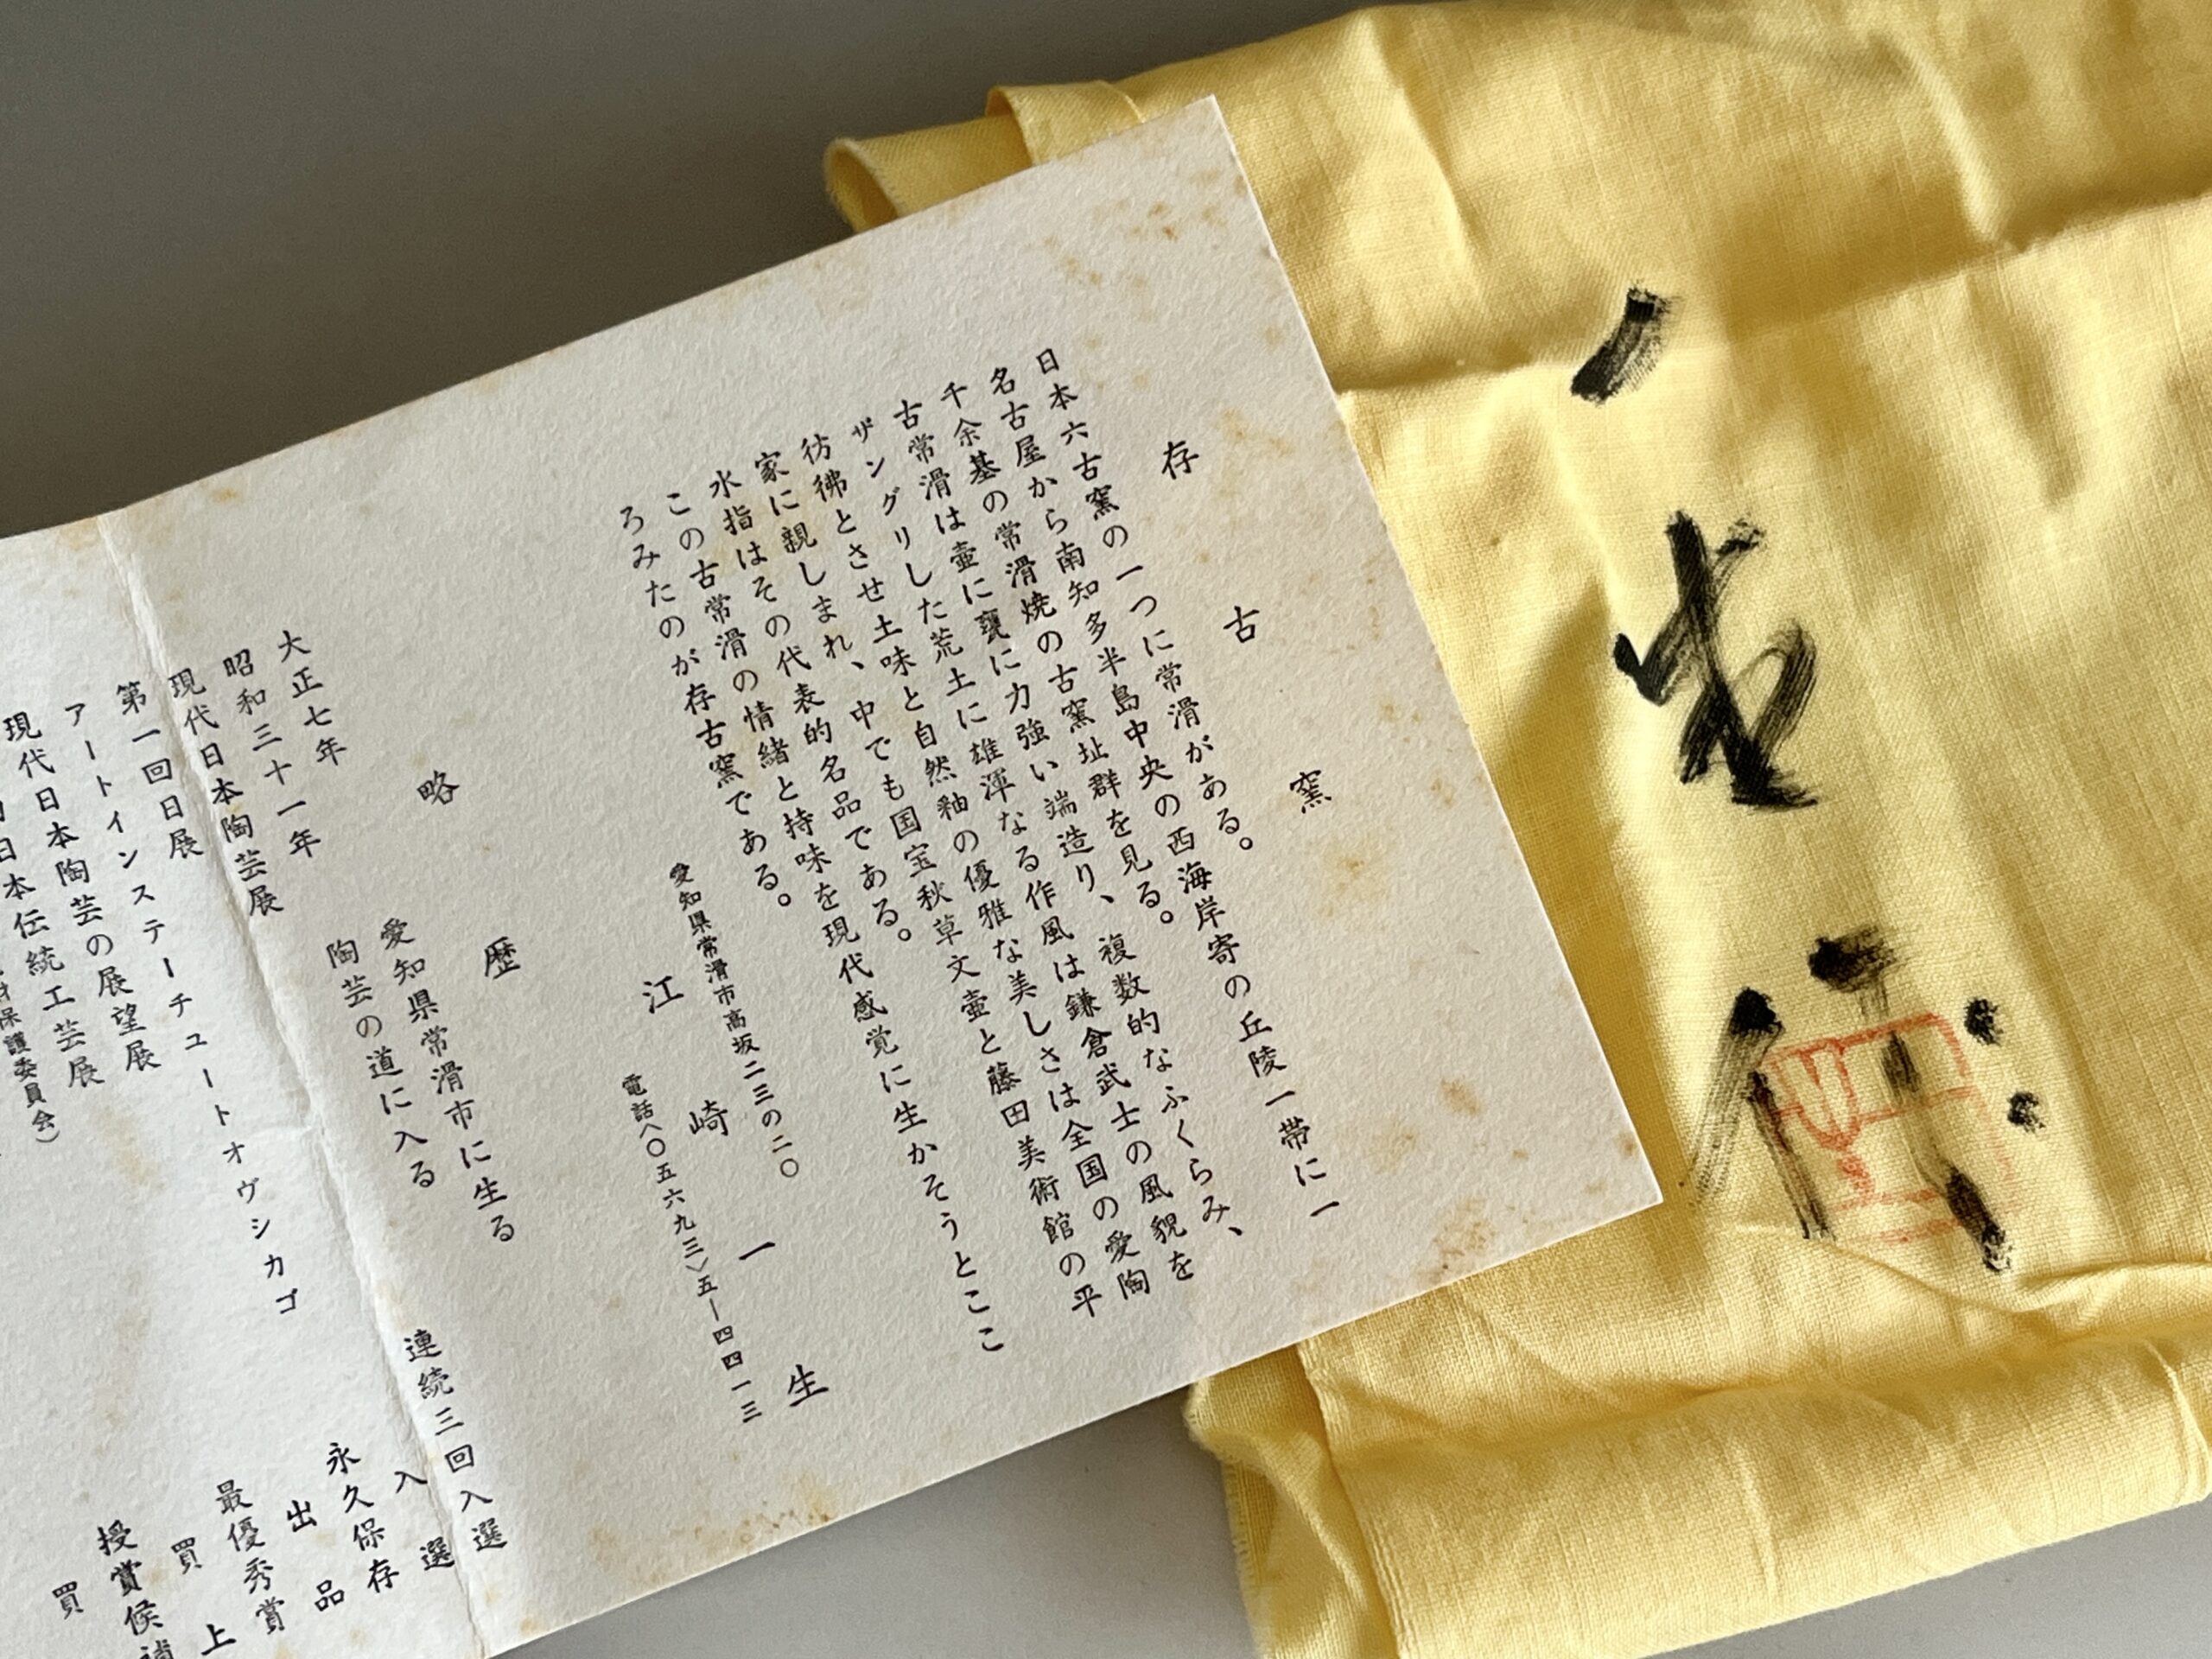 存古窯
日本六古窯の一つに常滑がある。
名古屋から南知多半島中央の西海岸寄の丘陵一帯に一
千余基の常滑焼の古窯址群を見る。
古常滑は壷に甕に力強い端造り、複数的なふくらみ、
ザングリした荒土に雄渾なる作風は鎌倉武士の風貌を
彷彿とさせ土味と自然釉の優雅な美しさは全国の愛陶
家に親しまれ、中でも国宝秋草文壷と藤田美術館の平
水指はその代表的名品である。
この古常滑の情緒と持味を現代感覚に生かそうとここ
ろみたのが存古窯である。
愛知県常滑市高坂二三の二〇
江崎一生
電話〈〇五六九三〉五―四四一三
略歴
大正七年 愛知県常滑市に生る
昭和三十一年 陶芸の道に入る
現代日本陶芸展 連続三回入選
第一回日展 入選
アートインスチュートオヴシカゴ 永久保存
現代日本陶芸の展望展 出品
日本伝統工芸展 最優秀賞
保護委員会） 買上
授賞候補
買
一生